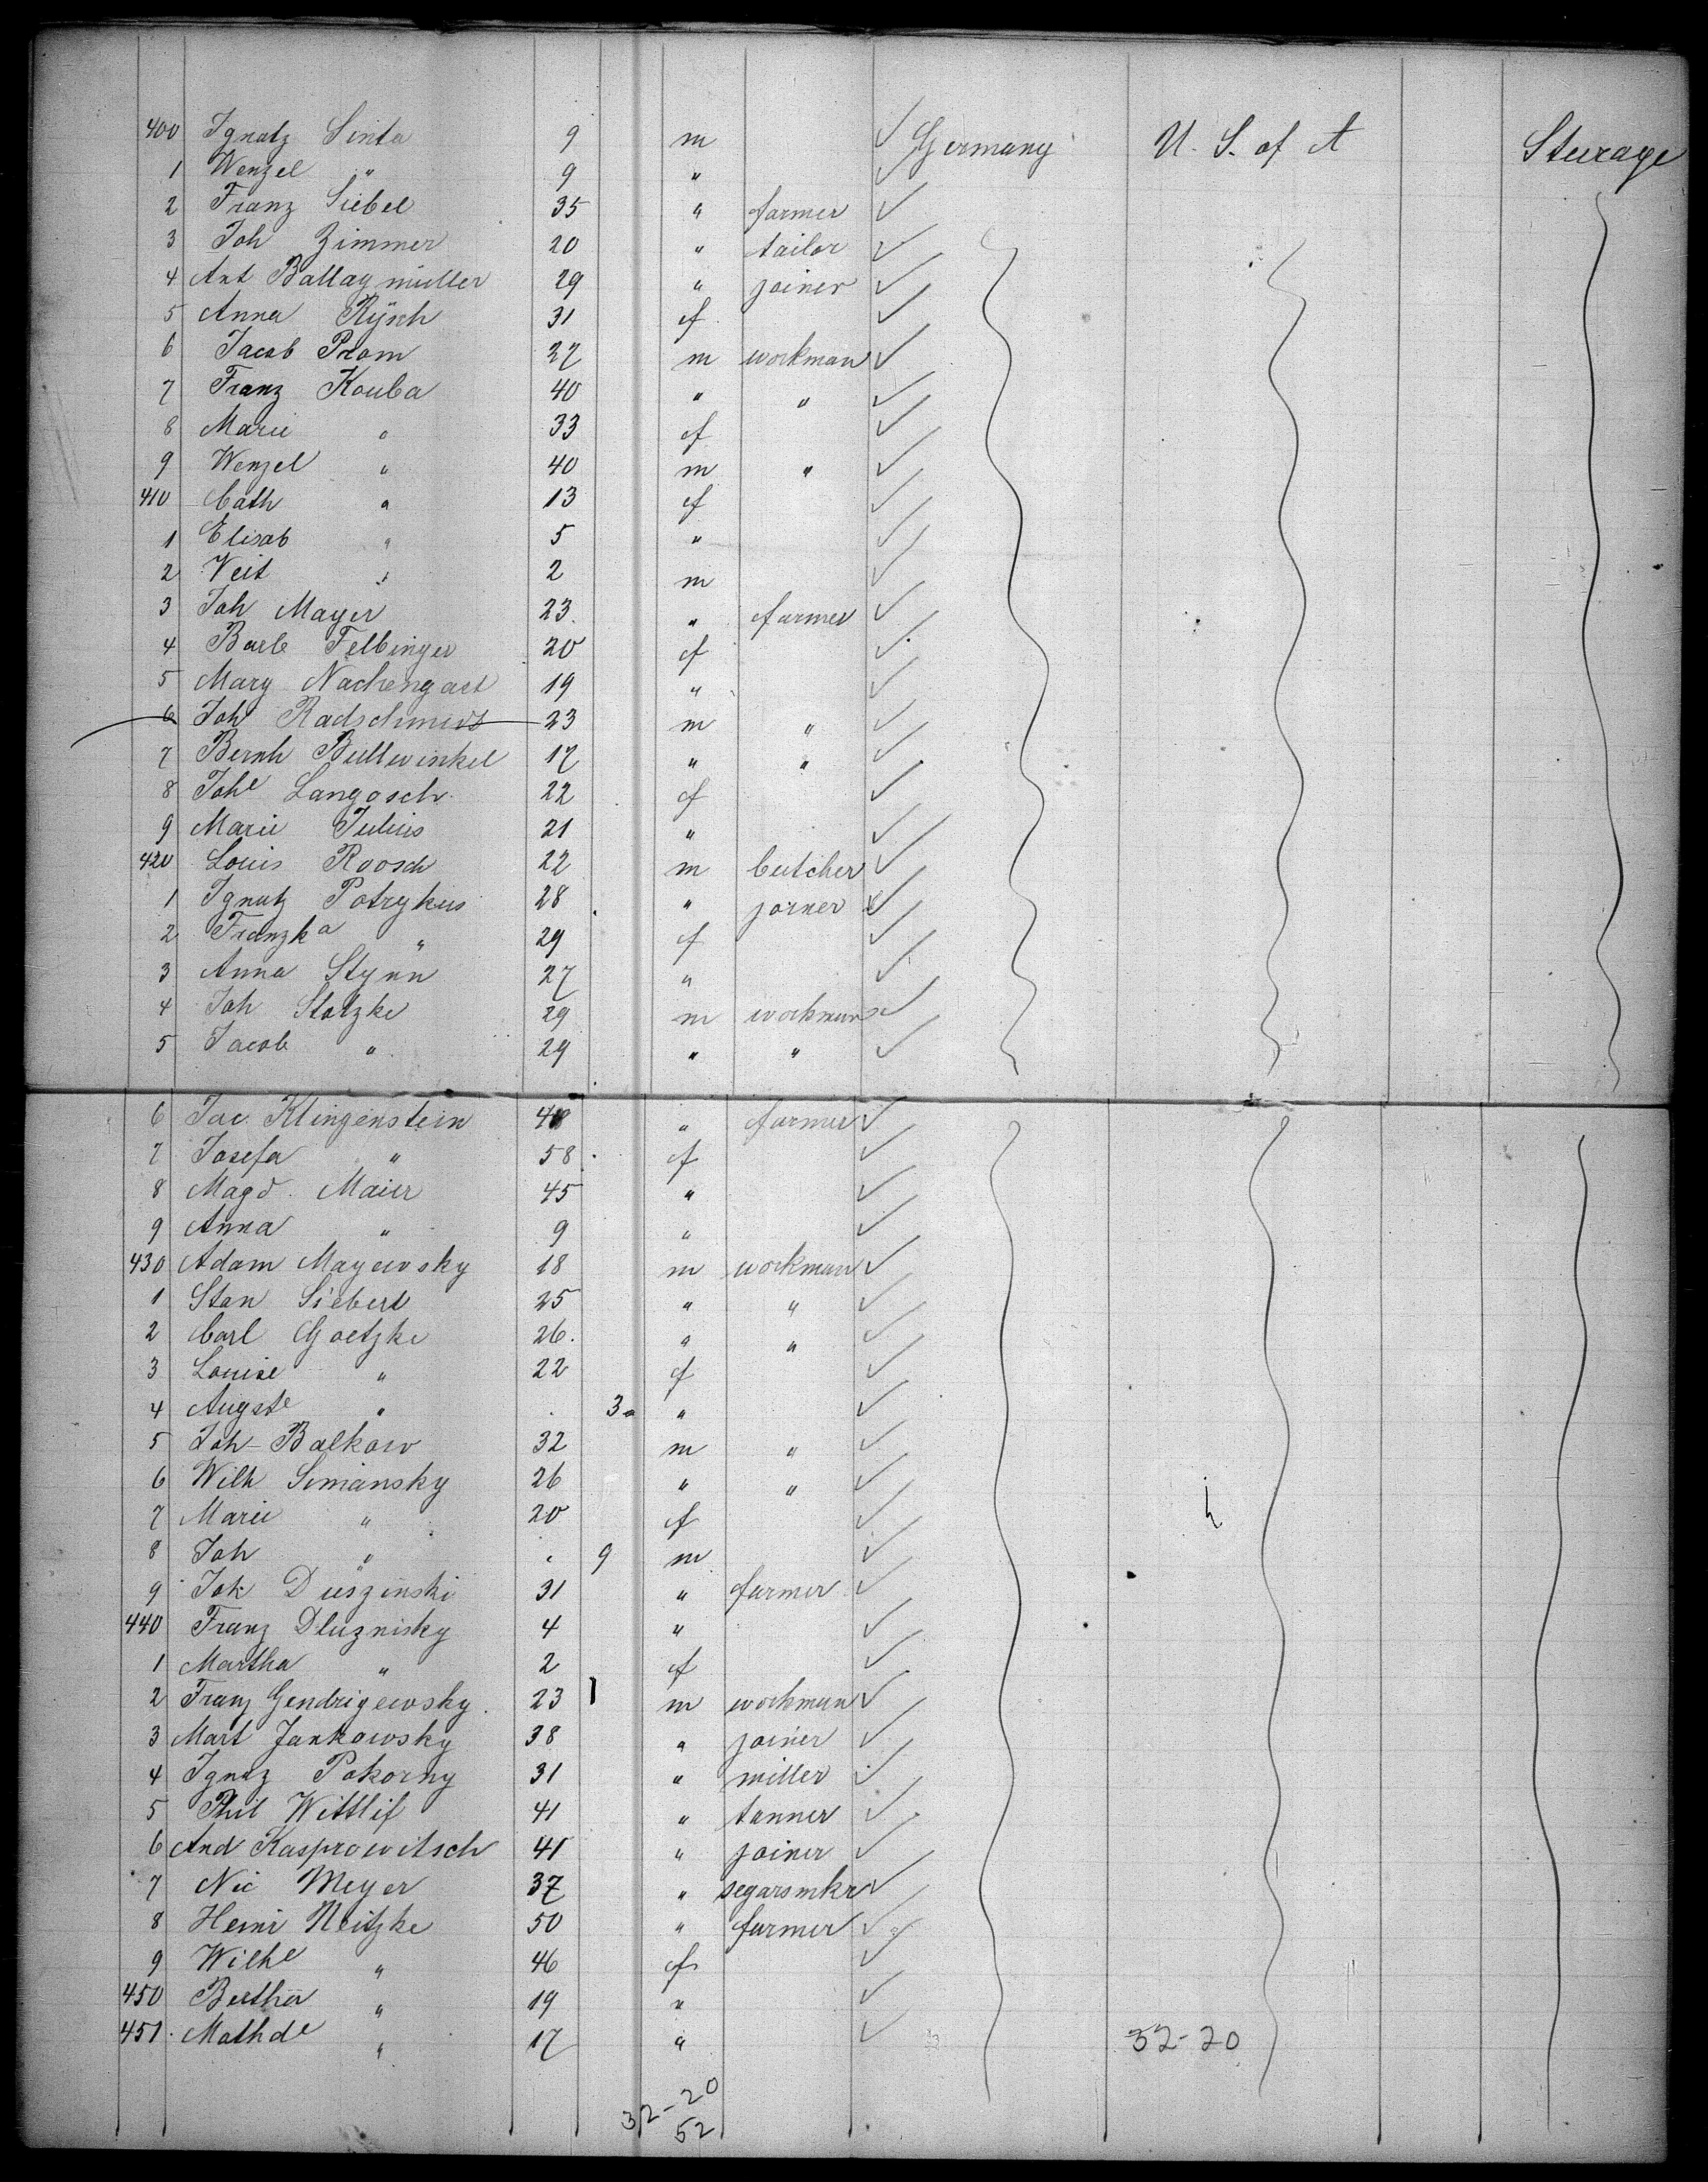 400 Ignatz Sinta 9 m ✓ Germany U. S. of A Steerage
1 Wenzel " 9 " ✓
2 Franz Siebel 35 " farmer ✓
3 Joh Zimmer 20 " tailor ✓
4 Ant Ballagmüller 29 " joiner ✓
5 Anna 31 f ✓
6 Jacob Prom 27 m workman ✓
7 Franz Kouba 40 " " ✓
8 Marie " 33 f ✓
9 Wenzel " 40 m " ✓
410 Cath " 13 f ✓
1 Elisab " 5 " ✓
2 Veit " 2 m ✓
3 Joh Mayer 23 " farmer ✓
4 Barb Felbinger 20 f ✓
5 Mary Nachengast 19 " ✓
6 Joh Radschmidt 23 m " ✓
7 Bernh Bullwinkel 17 " " ✓
8 Johe Langosch 22 f ✓
9 Marie Julius 21 " ✓
420 Louis Roosch 22 m butcher ✓
1 Ignatz Potrykus 28 " joiner ✓
2 Franzka " 29 f ✓
3 Anna Stynn 27 " ✓
4 Joh Stolzke 29 m workman ✓
5 Jacob " 29 " " ✓
6 Jac Klingenstein 48 " farmer ✓
7 Josefa " 58 f ✓
8 Magd. Maier 45 " ✓
9 Anna " 9 " ✓
430 Adam Mayewsky 18 m workman ✓
1 Stan Siebert 25 " " ✓
2 Carl Goetzke 26. " " ✓
3 Louise " 22 f ✓
4 Auguste " 3 " ✓
5 Joh Balkow 32 m " ✓
6 Wilh Simansky 26 " " ✓
7 Marie " 20 f ✓
8 Joh " 9 m ✓
9 Jok Duszinski 31 " farmer ✓
440 Franz Dluznisky 4 " ✓
1 Martha " 2 f ✓
2 Franz Gendrigewsky 23 m workman ✓
3 Mart Jankowsky 38 " joiner ✓
4 Ignaz Pokorny 31 " miller ✓
5 Phil Wittlif 41 " tanner ✓
6 And Kasprowitsch 41 " joiner ✓
7 Nic Meyer 37 " segarsmkr ✓
8 Heinr Neitzke 50 " farmer ✓
9 Wilhe " 46 f ✓
450 Bertha " 19 " ✓
451. Mathde " 17 " ✓ 32-20
32-20
52